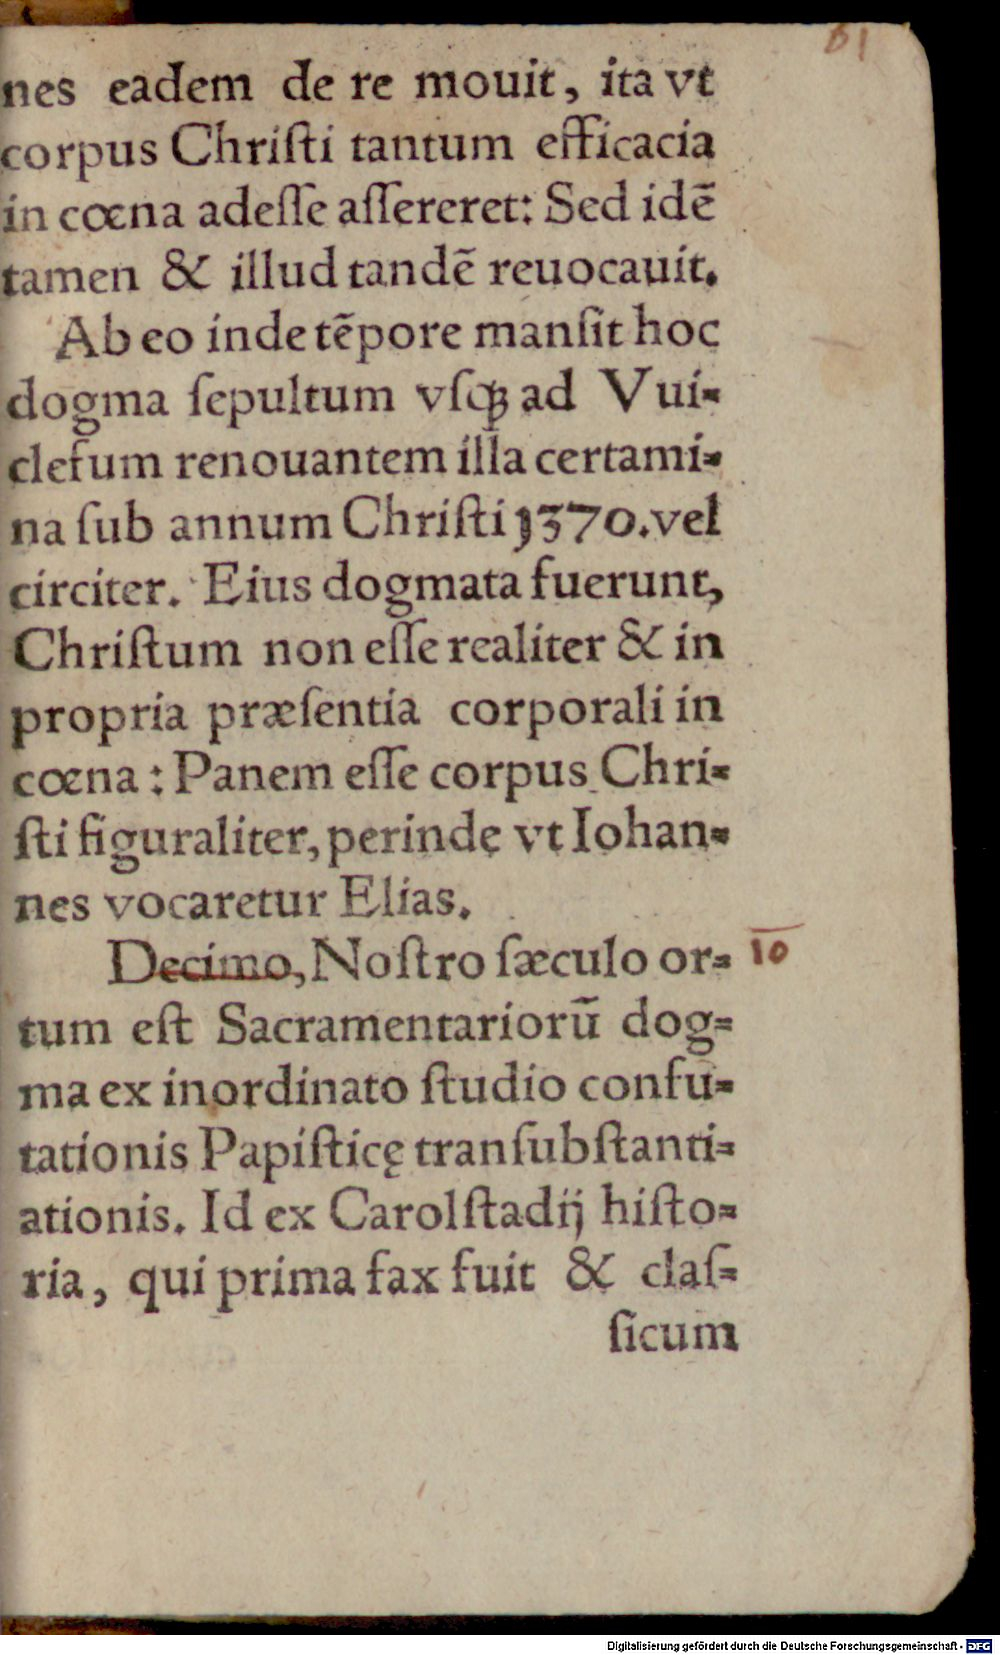 61
nes eadem de re mouit, ita vt
corpus Chriſti tantum efficacia
in cœna adeſſe aſſereret: Sed idē
tamen & illud tandē reuocauit.
Ab eo inde tēpore manſit hoc
dogma ſepultum vſqꝫ ad Vui-
clefum renouantem illa certami-
na ſub annum Chriſti 1370. vel
circiter. Eius dogmata fuerunt,
Chriſtum non eſſe realiter & in
propria præſentia corporali in
cœna: Panem eſſe corpus Chri-
ſti figuraliter, perinde vt Iohan-
nes vocaretur Elias.
Decimo, Noſtro ſæculo or- 10
tum eſt Sacramentariorū dog-
ma ex inordinato ſtudio confu-
tationis Papiſticę tranſubſtanti-
ationis. Id ex Carolſtadij hiſto-
ria, qui prima fax fuit & claſ-
ſicum
Digitalisierung gefördert durch die Deutsche Forschungsgemeinschaft - DFG